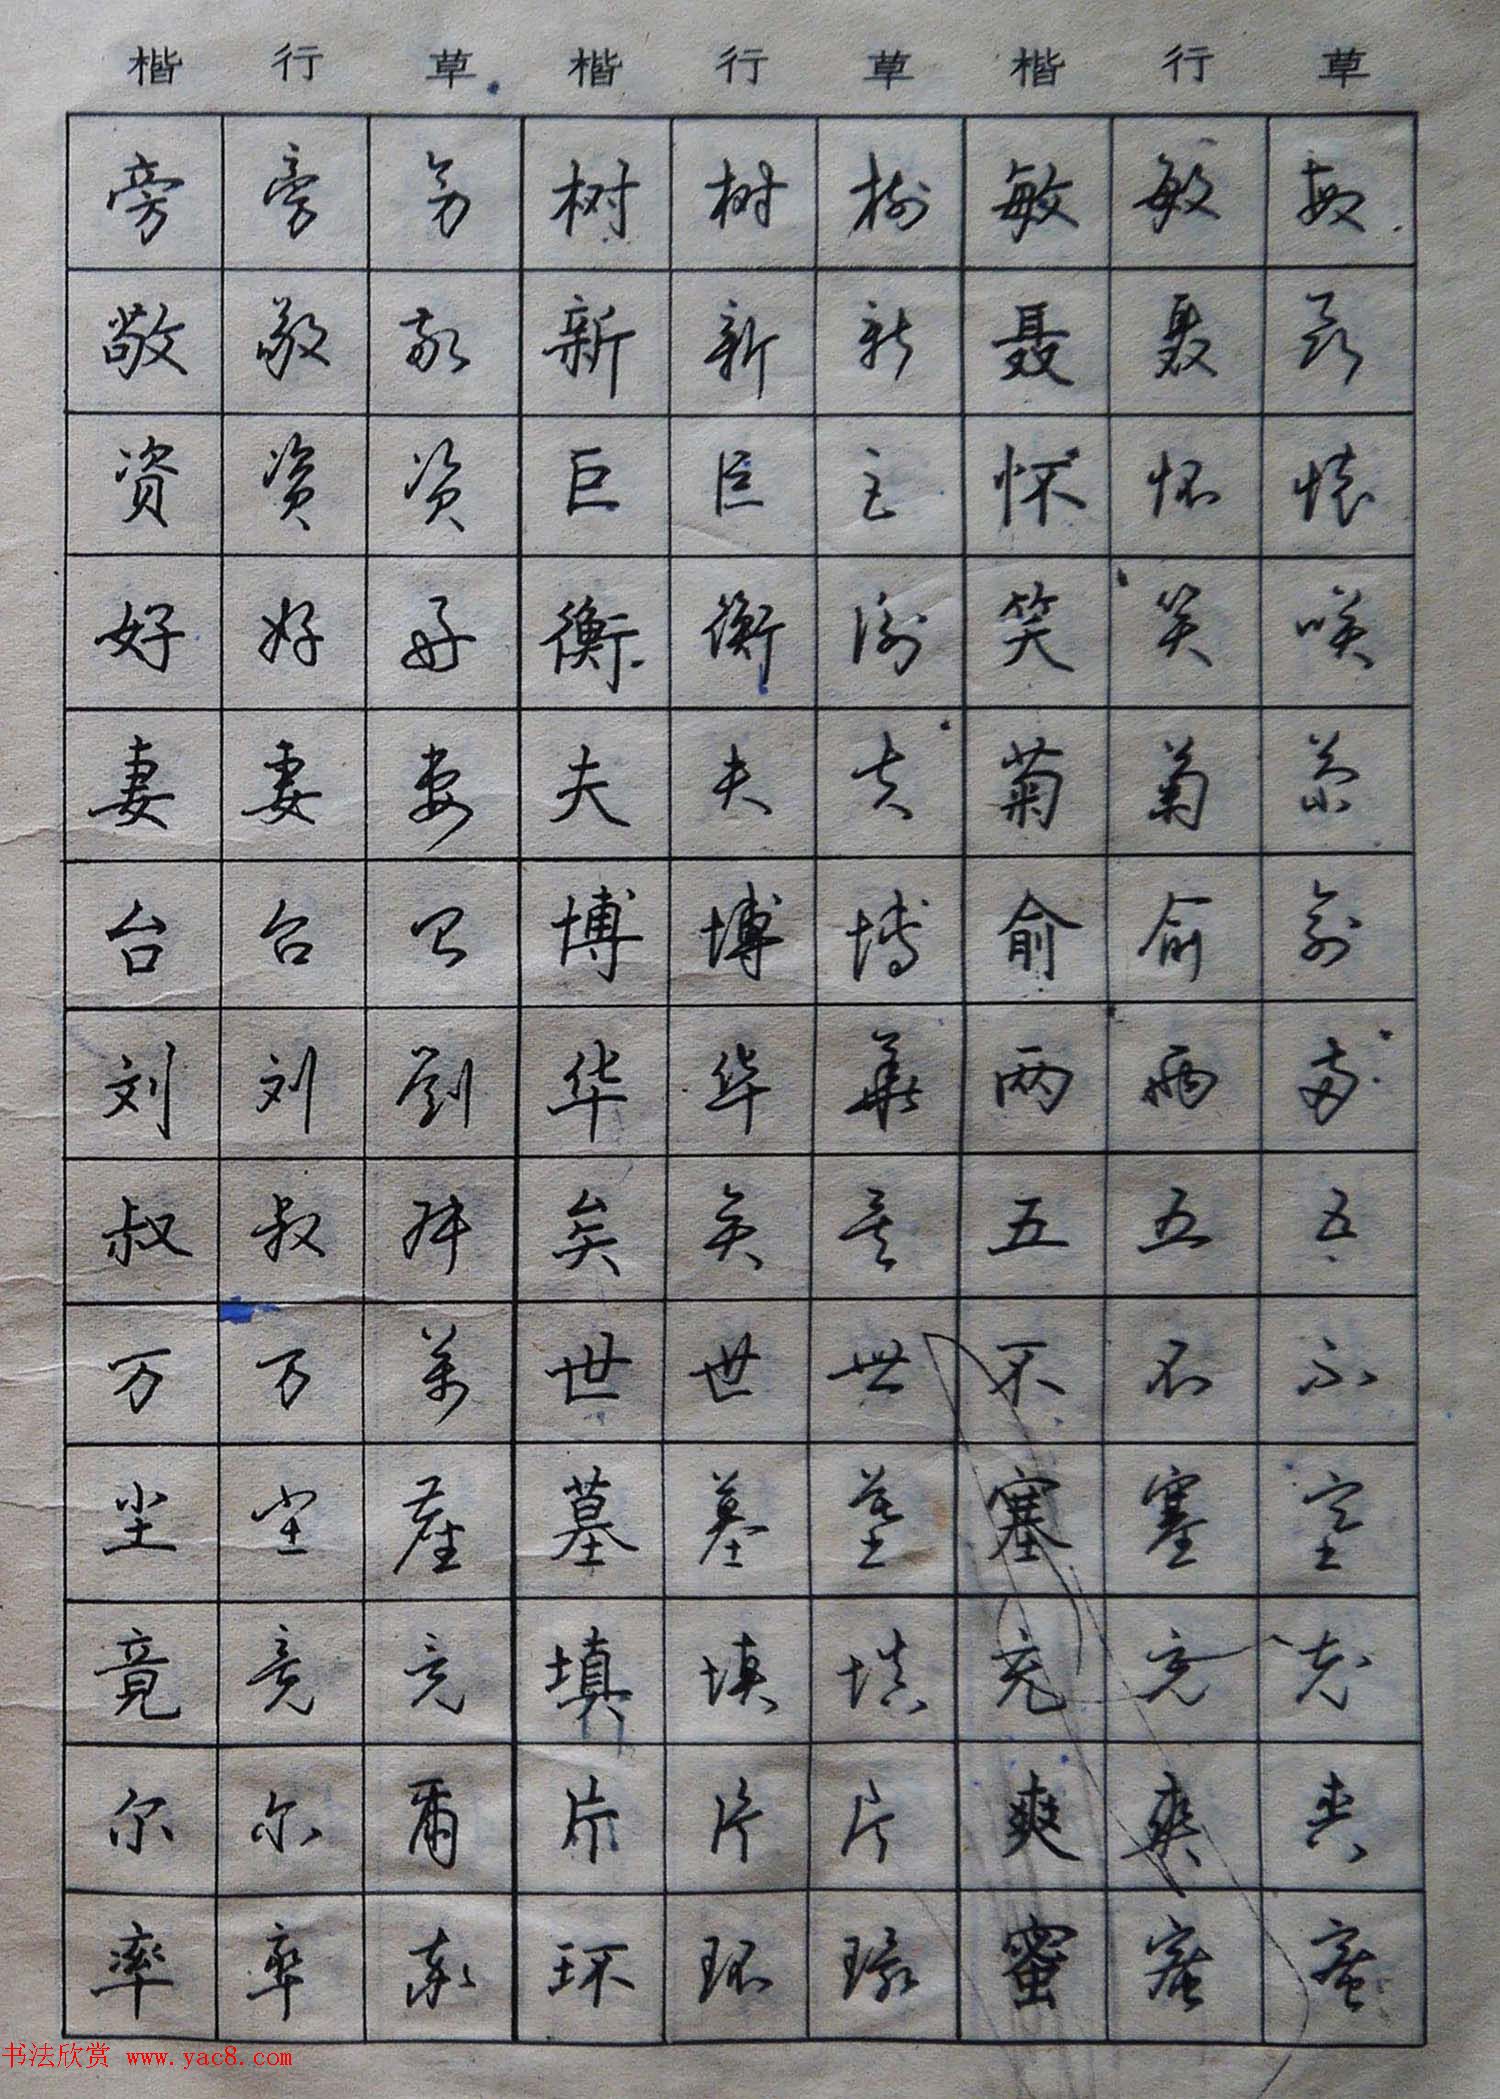 楷 行 草 楷 行 草 楷 行 草
旁 旁 旁 树 树 树 敏 敏 敏
敬 敬 敬 新 新 新 聂 聂 聂
资 资 资 巨 巨 巨 怀 怀 懷
好 好 好 衡 衡 衡 笑 笑 咲
妻 妻 妻 夫 夫 夫 菊 菊 菊
台 台 台 博 博 博 俞 俞 俞
刘 刘 劉 华 华 華 两 两 两
叔 叔 叔 矣 矣 矣 五 五 五
万 万 萬 世 世 世 不 不 不
尘 尘 塵 墓 墓 墓 塞 塞 塞
竟 竟 竟 填 填 填 充 充 充
尔 尔 爾 片 片 片 爽 爽 爽
率 率 率 环 环 環 蜜 蜜 蜜
书法欣赏 www.yac8.com